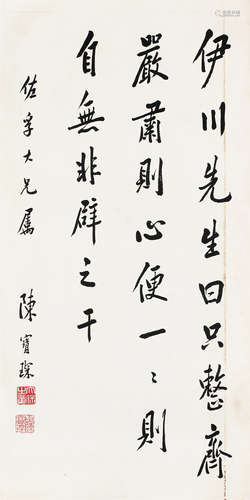 伊川先生曰只整齊
嚴肅則心便一一則
自無非辟之干
佐孚大兄屬
陳寶琛